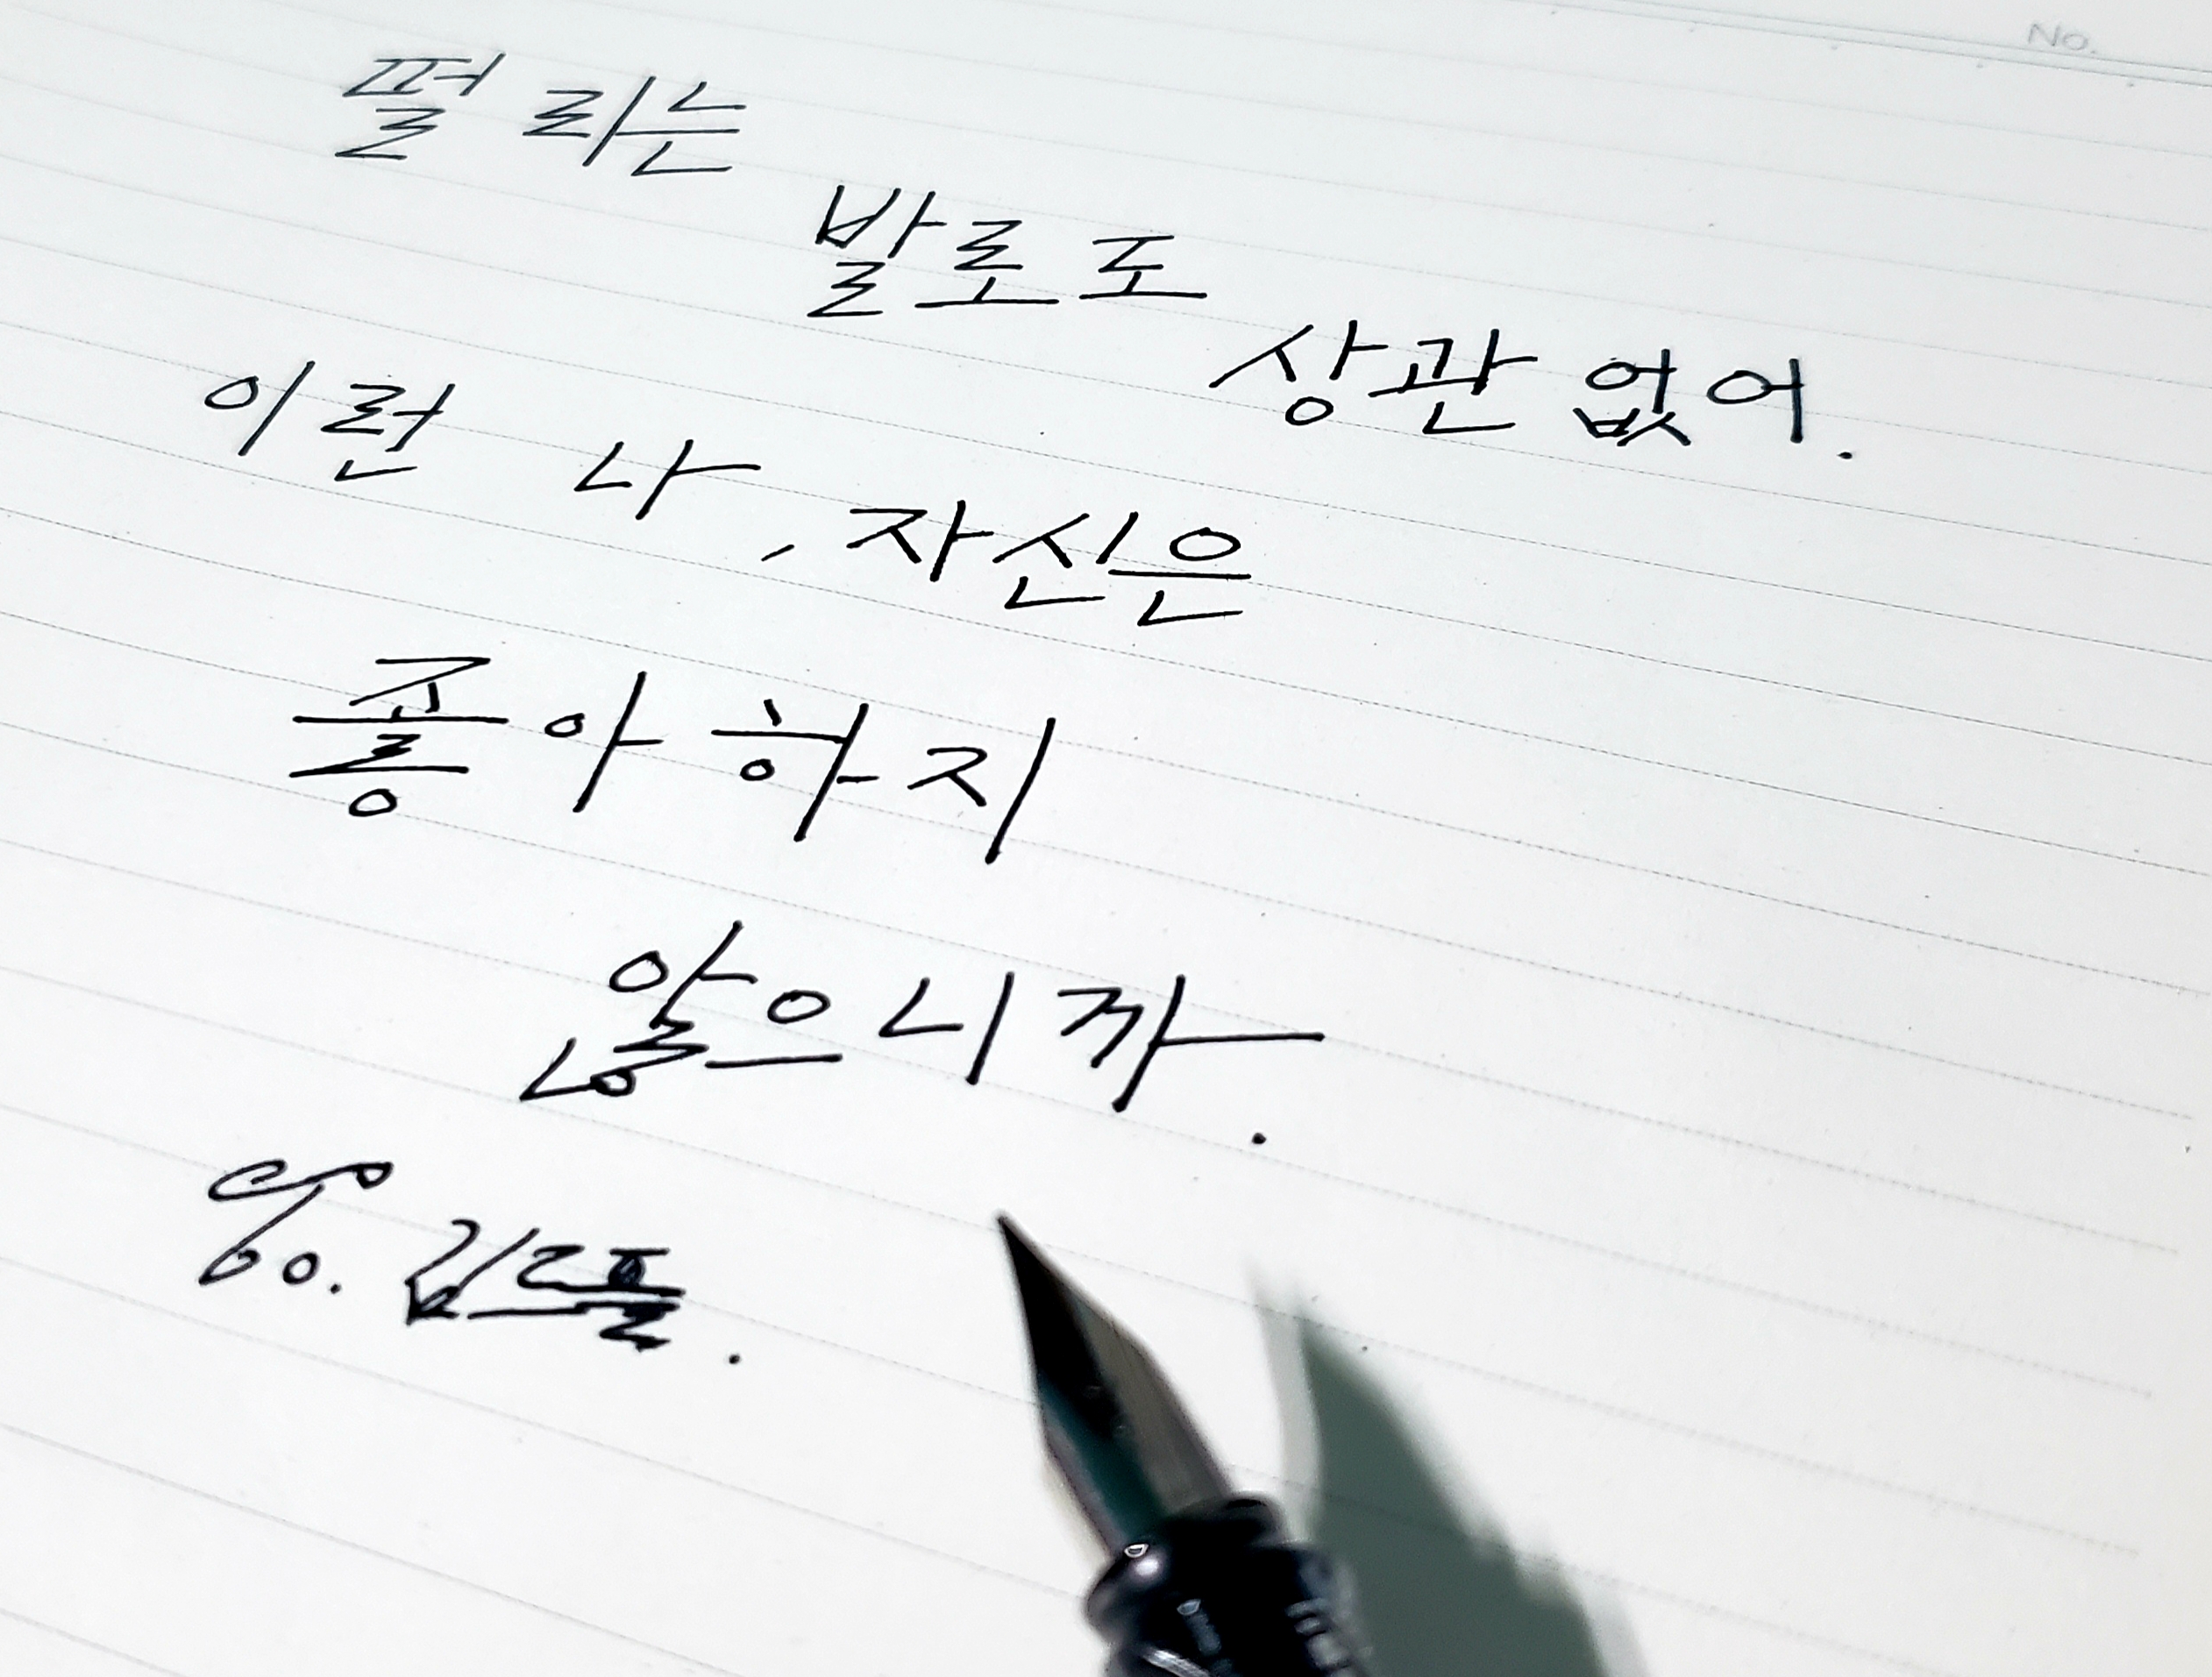 No.
떨리는
발로도
상관없어.
이런 나, 자신은
좋아하지
않으니까.